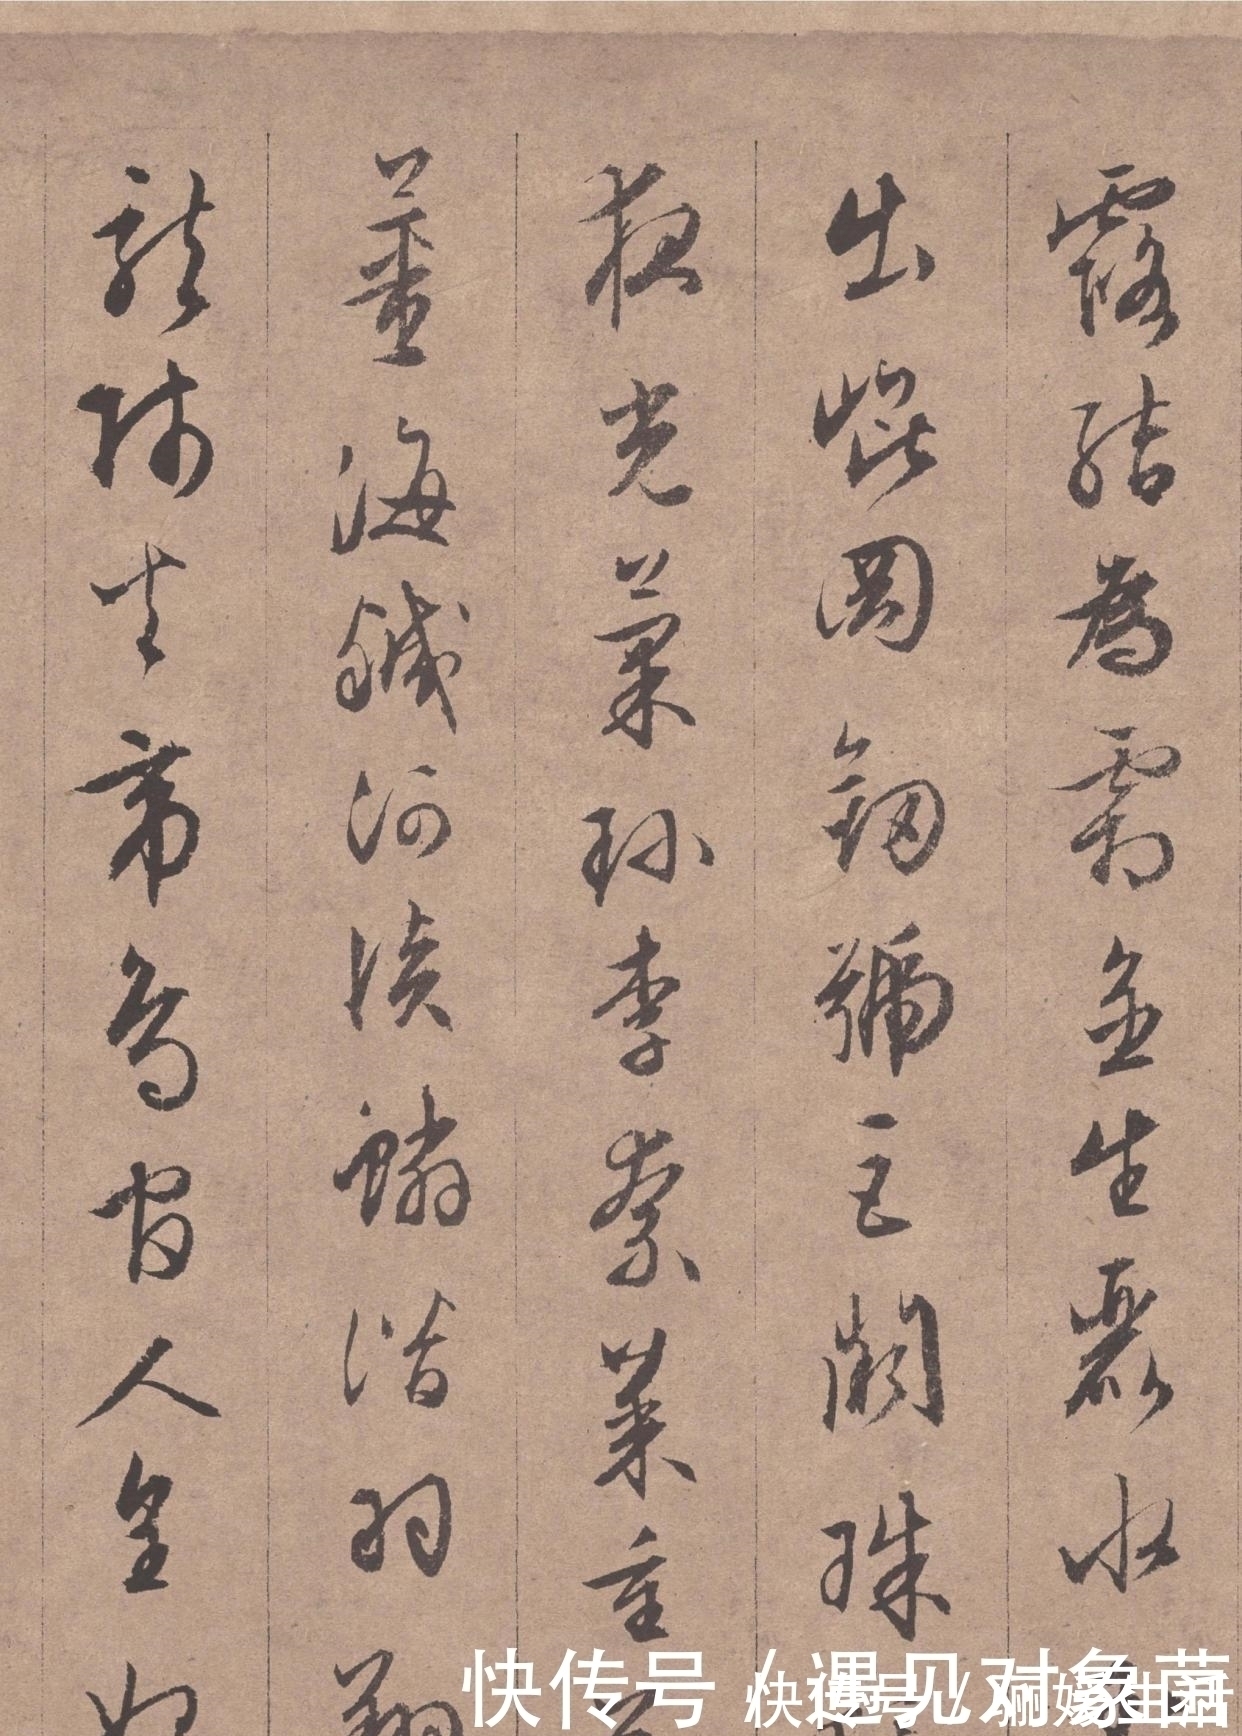 露結為霜金生麗水
出崐罡劔號巨闕珠
夜光菓珍李柰菜重
薑海鹹河淡鱗潛羽翔
龍師火帝鳥官人皇始
快传号 / 遇见对象菌